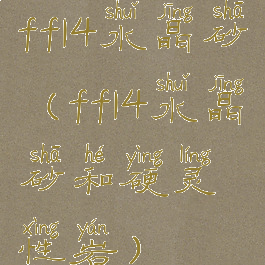 shuǐ jīng shā
ff14水晶砂
shuǐ jīng
(ff14水晶
shā hé yìng líng
砂和硬灵
xìng yán
性岩)